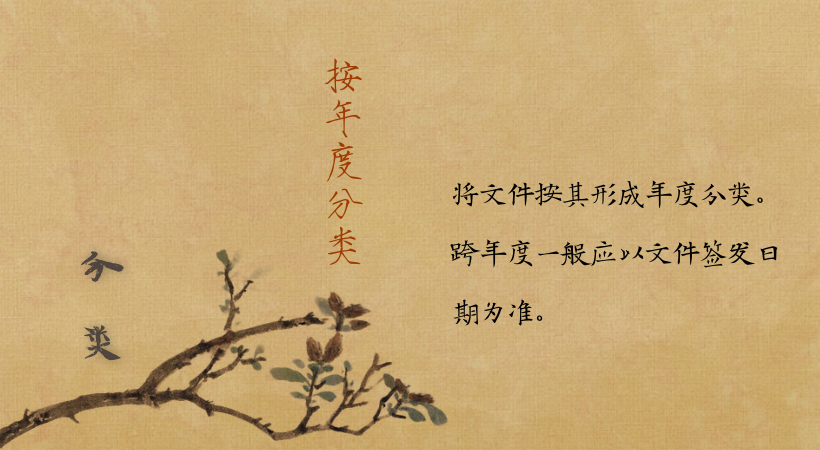 按年度分类
分类
将文件按其形成年度分类。
跨年度一般应以文件签发日
期为准。